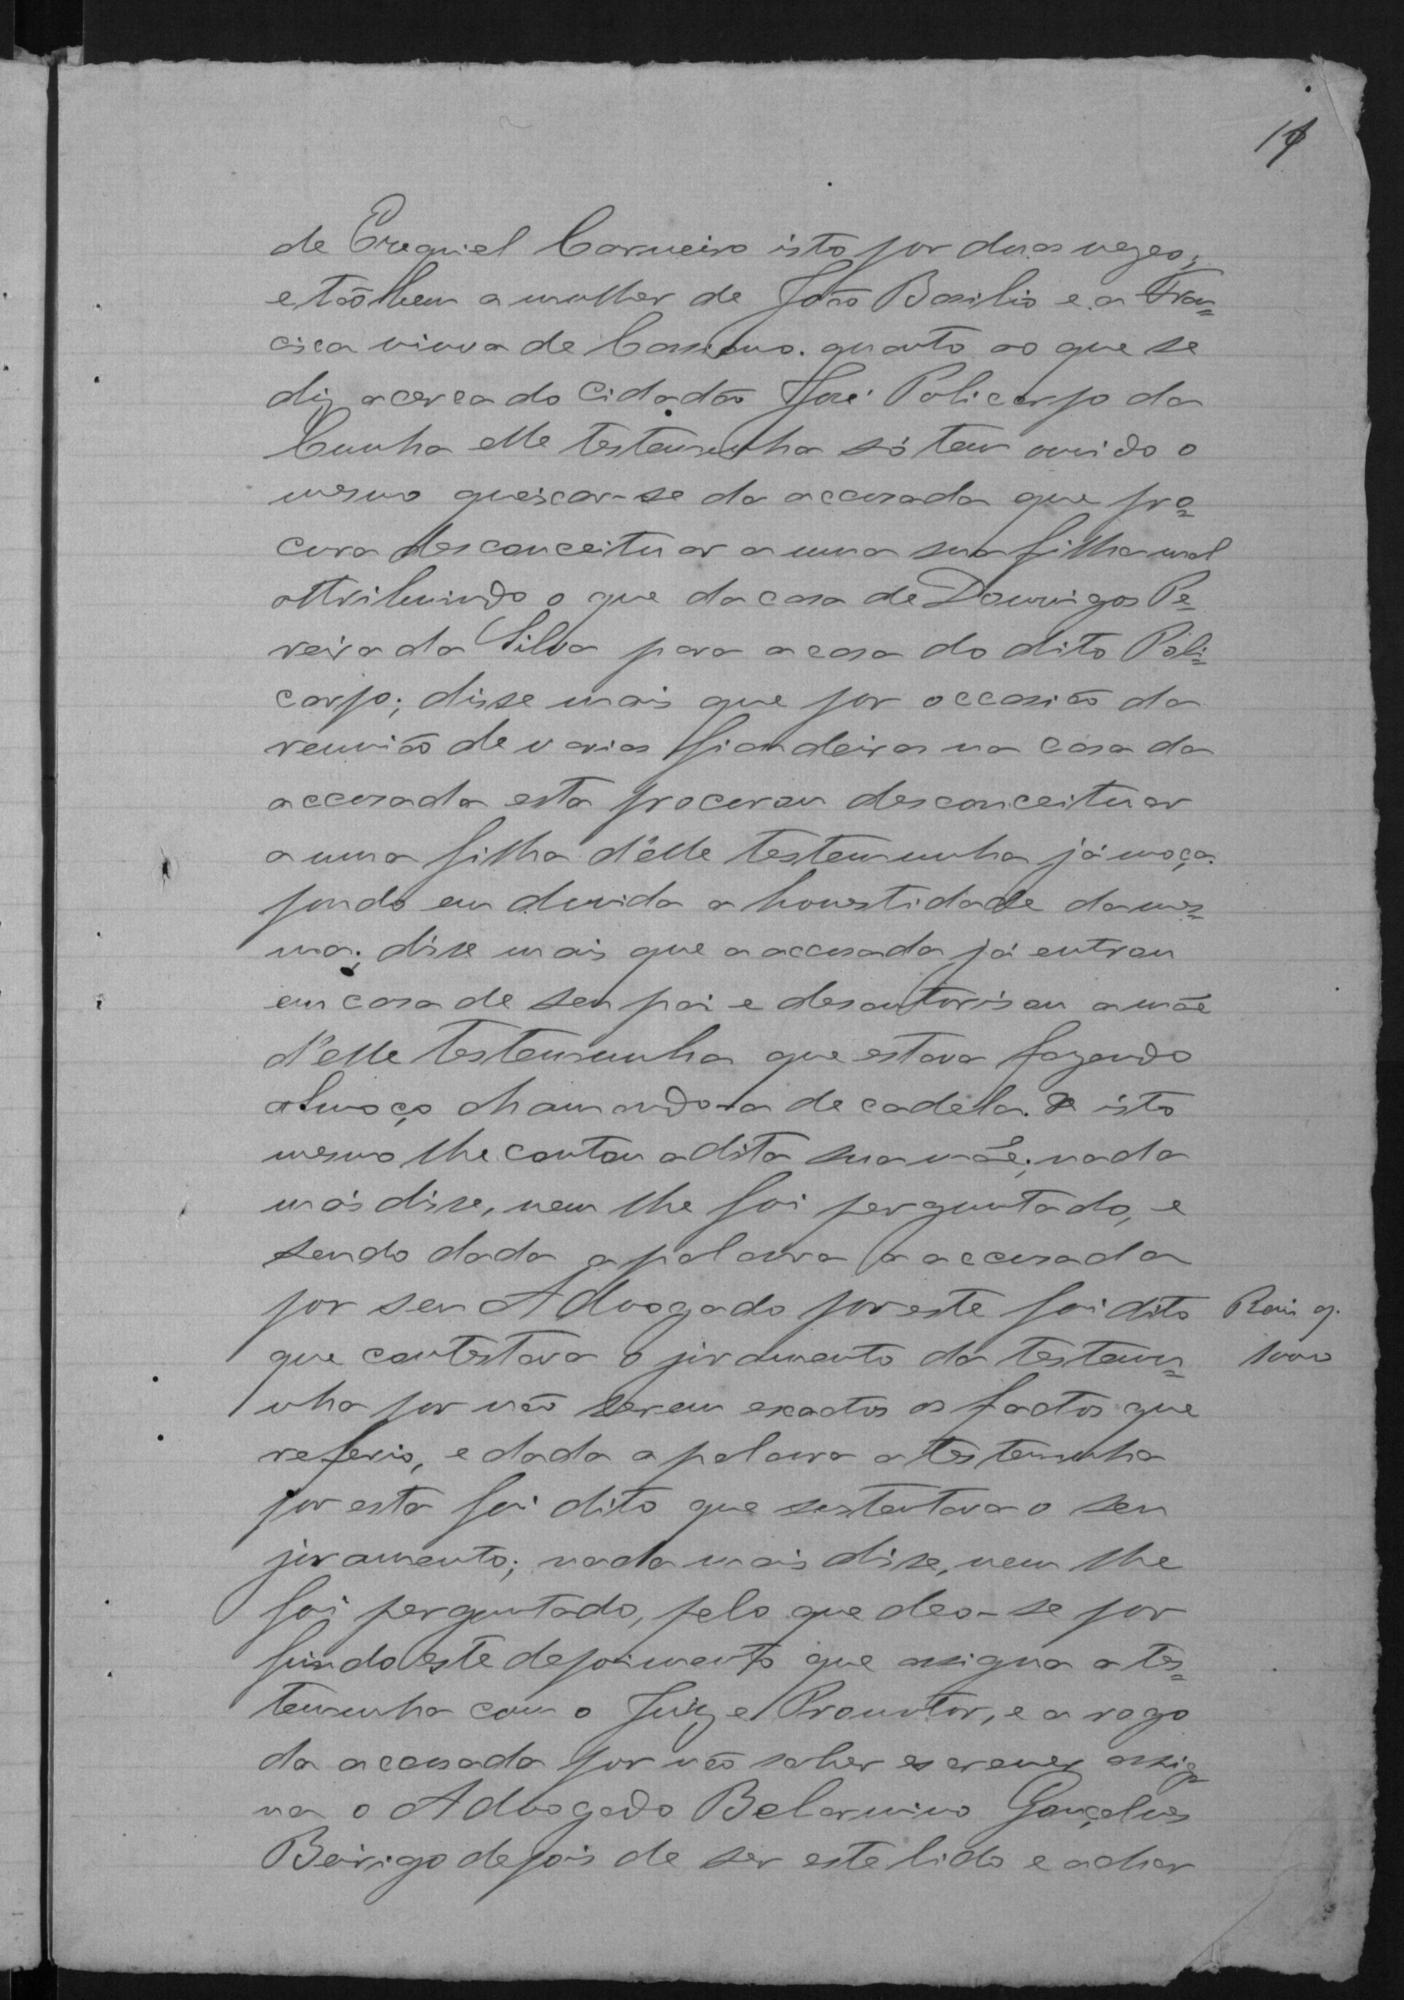 de Ezequiel Carneiro isto por duas vezes;
e tãobem a mulher de João Basilio e a Fran=
cisca viuva de Cassiano. quanto ao que se
diz acerca do Cidadão José Policarpo da
Cunha elle testemunha só tem ouvido o
mesmo queixar-se da accusada que pro=
cura desconceituar a uma sua filha mal
attribuindo o que da casa de Domingos Pe=
reira da Silva para a casa do dito Poli=
carpo; disse mais que por occasião da
reunião de varias fiandeiras na casa da
accusada esta procurou desconceituar
a uma filha d'elle testemunha já moça.
pondo em duvida a honestidade da mes=
ma; disse mais que a accusada já entrou
em casa de seu pai e desautorisou a mãe
d'elle testemunha que estava fazendo
almoço chamando-a de cadela. e isto
mesmo lhe contou a dita sua mãe; nada
mais disse, nem lhe foi perguntado, e
sendo dada a palavra a accusada
por seu Advogado por este foi dito
que contestava o juramento da testemu=
nha por não serem exactos os factos que
referio, e dada a palavra a testemunha
por esta foi dito que sustentava o seu
juramento; nada mais disse, nem lhe
foi perguntado, pelo que deo-se por
findo este depoimento que assigna a tes=
temunha com o Juiz e Promotor, e a rogo
da accusada por não saber escrever assig
na o Advogado Belarmino Gonçalves
depois de ser este lido e achar